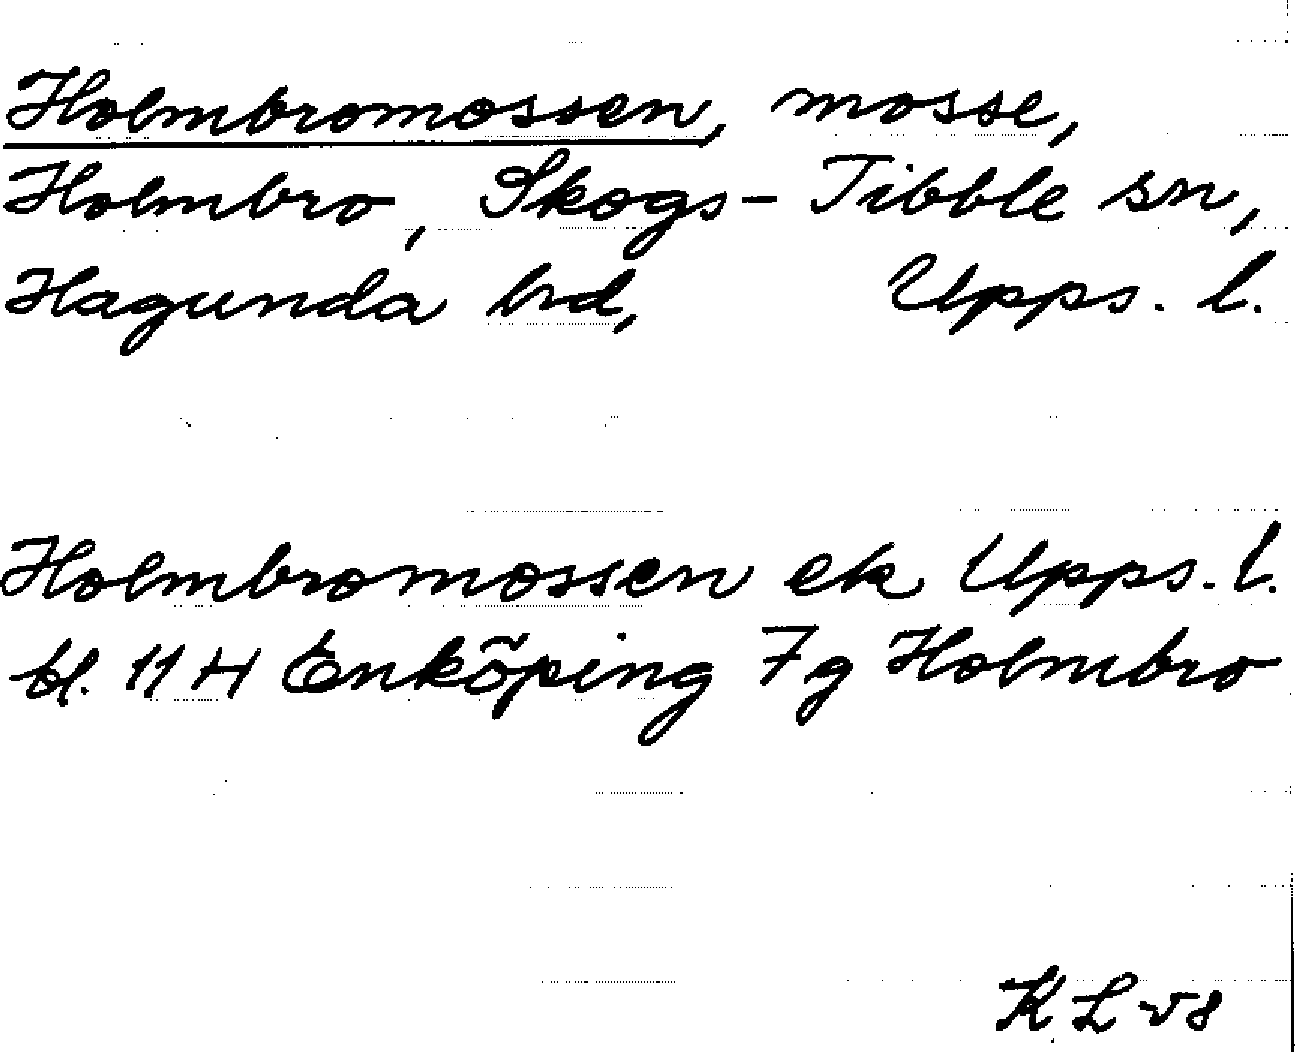 Holmbromossen, mosse,
Holmbro, Skogs-Tibble sn,
Hagunda hd, Upps. l.
Holmbromossen ek Upps. l.
bl. 11 H Enköping 7g Holmbro
KL-58